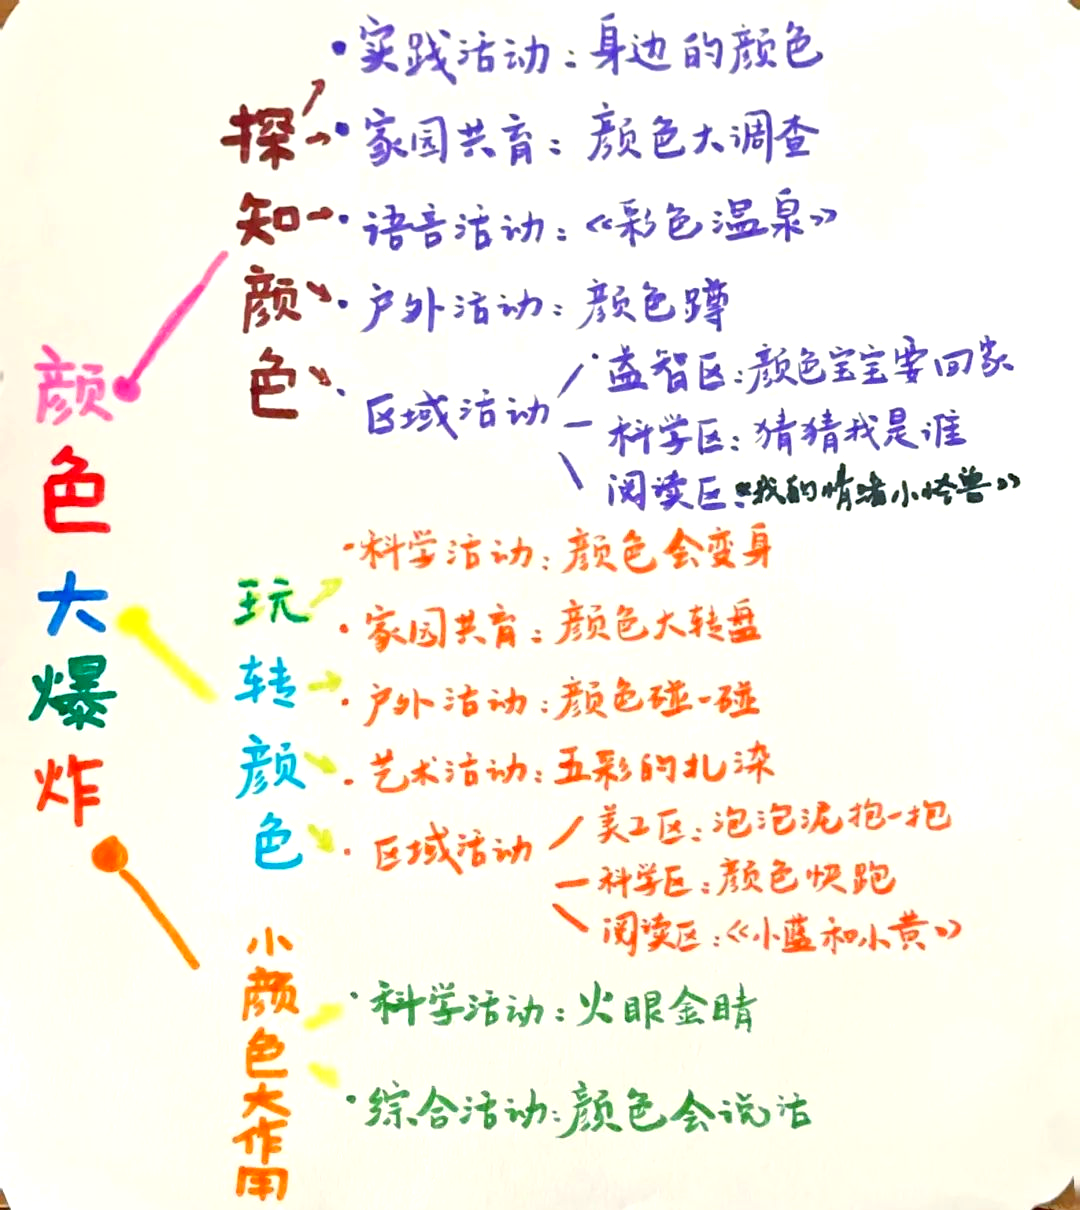 颜色大爆炸
探知颜色
实践活动：身边的颜色
家园共育：颜色大调查
语音活动：《彩色温泉》
户外活动：颜色蹲
区域活动
益智区：颜色宝宝要回家
科学区：猜猜我是谁
阅读区：《我的情绪小怪兽》
玩转颜色
科学活动：颜色会变身
家园共育：颜色大转盘
户外活动：颜色碰一碰
艺术活动：五彩的扎染
区域活动
美工区：泡泡泥抱一抱
科学区：颜色快跑
阅读区：《小蓝和小黄》
小颜色大作用
科学活动：火眼金睛
综合活动：颜色会说话